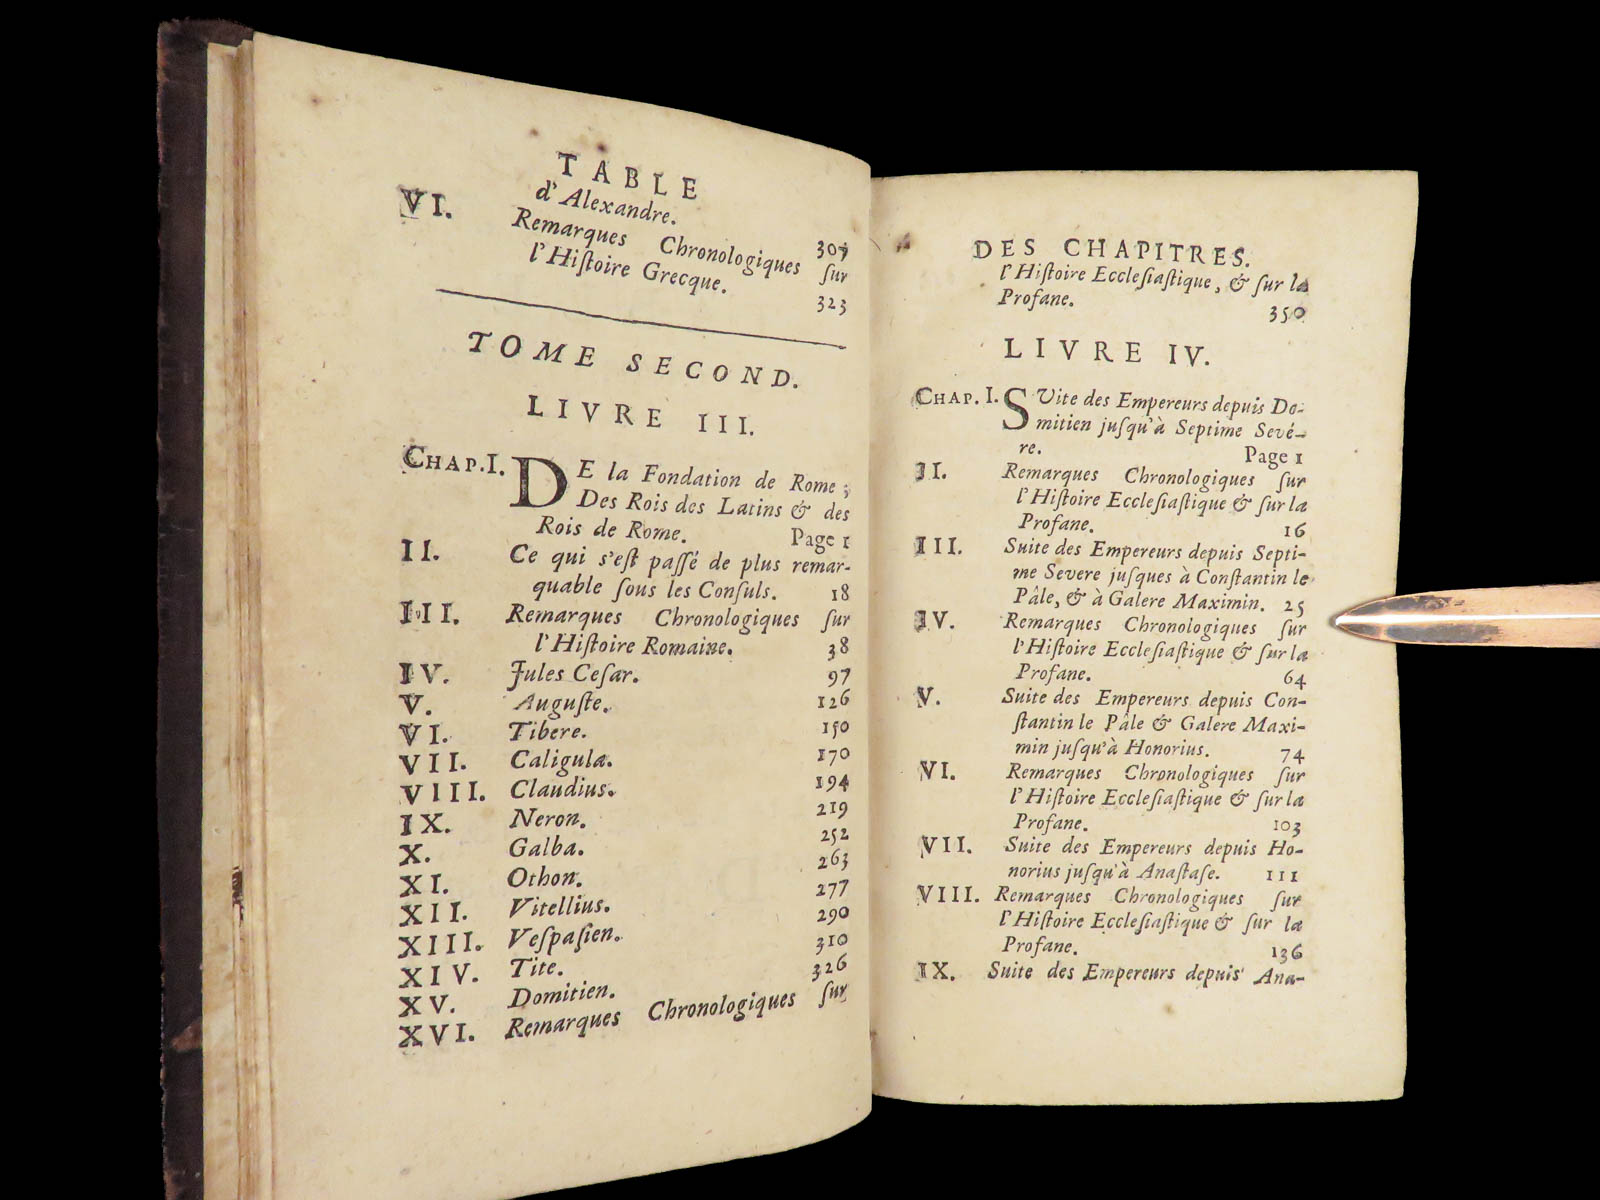 TABLE
d'Alexandre. 307
VI. Remarques Chronologiques ſur
l'Hiſtoire Grecque. 323
TOME SECOND.
LIVRE III.
CHAP. I. DE la Fondation de Rome;
Des Rois des Latins & des
Rois de Rome. Page 1
II. Ce qui s'eſt paſſé de plus remar-
quable ſous les Conſuls. 18
III. Remarques Chronologiques ſur
l'Hiſtoire Romaine. 38
IV. Jules Ceſar. 97
V. Auguſte. 126
VI. Tibere. 150
VII. Caligula. 170
VIII. Claudius. 194
IX. Neron. 219
X. Galba. 252
XI. Othon. 263
XII. Vitellius. 277
XIII. Veſpaſien. 290
XIV. Tite. 310
XV. Domitien. 326
XVI. Remarques Chronologiques ſur
DES CHAPITRES.
l'Hiſtoire Eccleſiaſtique, & ſur la
Profane. 350
LIVRE IV.
CHAP. I. SVite des Empereurs depuis Do-
mitien juſqu'à Septime Sevé-
re. Page 1
II. Remarques Chronologiques ſur
l'Hiſtoire Eccleſiaſtique & ſur la
Profane. 16
III. Suite des Empereurs depuis Septi-
me Severe juſques à Conſtantin le
Pâle, & à Galere Maximin. 25
IV. Remarques Chronologiques ſur
l'Hiſtoire Eccleſiaſtique & ſur la
Profane. 64
V. Suite des Empereurs depuis Con-
ſtantin le Pâle & Galere Maxi-
min juſqu'à Honorius. 74
VI. Remarques Chronologiques ſur
l'Hiſtoire Eccleſiaſtique & ſur la
Profane. 103
VII. Suite des Empereurs depuis Ho-
norius juſqu'à Anaſtaſe. 111
VIII. Remarques Chronologiques ſur
l'Hiſtoire Eccleſiaſtique & ſur la
Profane. 136
IX. Suite des Empereurs depuis Ana-